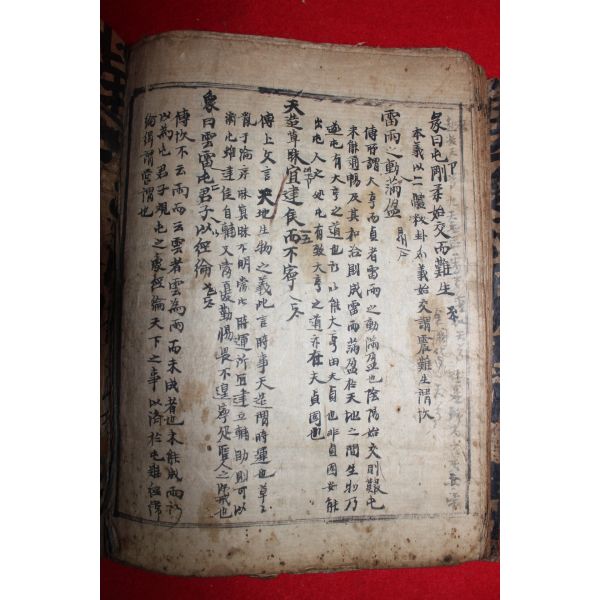 彖曰屯剛柔始交而難生
本義以二體釋卦名義始交謂震難生謂坎
雷雨之動滿盈
傳所謂大亨而貞者雷雨之動滿盈也陰陽始交則艱屯
未能通暢及其和洽則成雷雨滿盈於天地之間生物乃
遂屯有大亨之道也所以能大亨由夫貞也非貞固安能
出屯人之處屯有致大亨之道亦在夫貞固也
天造草昧宜建侯而不寧
傳上文言天地生物之義此言時事天造謂時運也草草
亂无倫序昧冥昧不明當此時運所宜建立輔助則可以
濟屯雖建侯自輔又當憂勤惕畏不遑寧處聖人之深戒也
象曰雲雷屯君子以經綸
傳坎不云雨而云雲者雲為雨而未成者也未能成雨所
以為屯君子觀屯之象經綸天下之事以濟於屯難經緯
綸緝謂營謂也